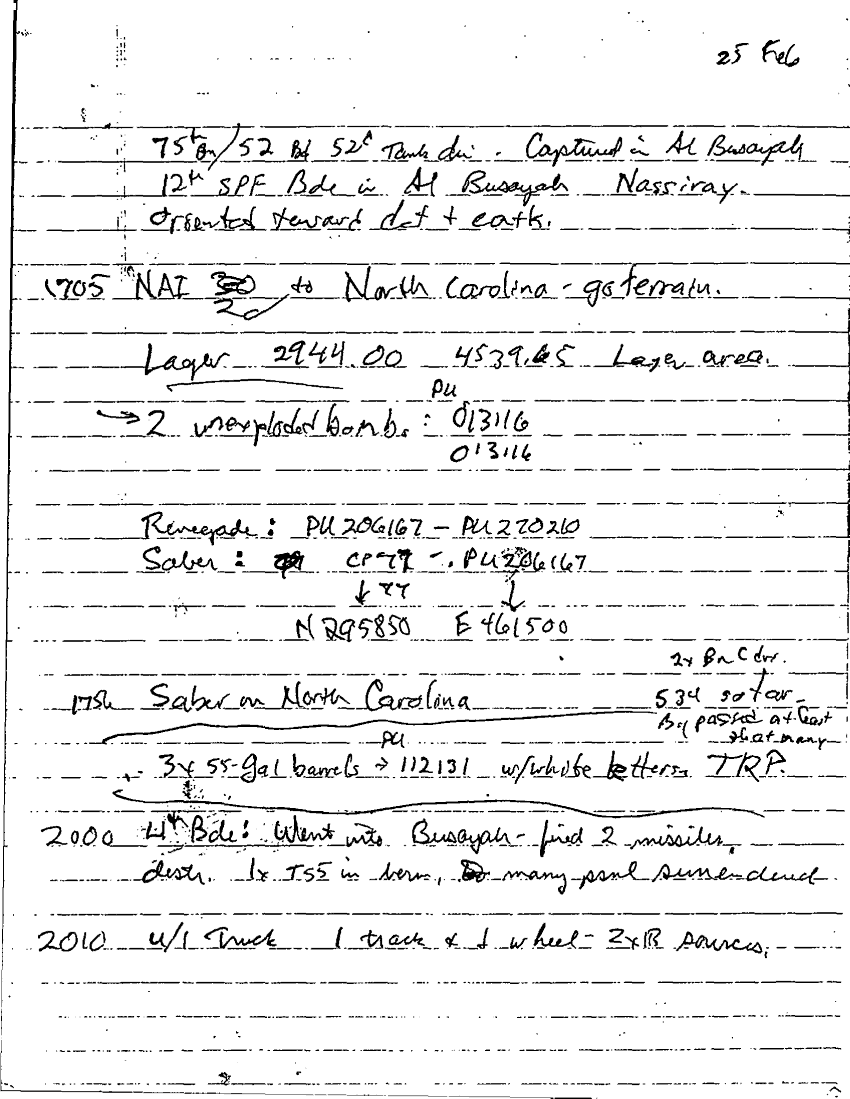 25 Feb
75th Bn/52 Bd 52d Tank div. Captured in Al Busayah
12th SPF Bde in Al Busayah Nassiray.
Oriented toward def + catk.
1705 NAI 20 to North Carolina - go terrain.
Lager 2944.00 4539.65 Lager area.
PU
→ 2 unexploded bombs : 013116
013116
Renegade : PU 206167 - PU 270210
Saber : CP 77 - PU 206167
↓ ↓
N 295850 E 461500
2x Bn Cdr.
1756 Saber on North Carolina 534 so far -
By passed at least
that many
PU
- 3x 55-gal barrels → 112131 w/white letters TRP.
2000 4th Bde: Went into Busayah - fired 2 missiles,
destr. 1x T55 in berm, many psnl surrendered.
2010 u/i Truck 1 track & 1 wheel - 2x IR sources.